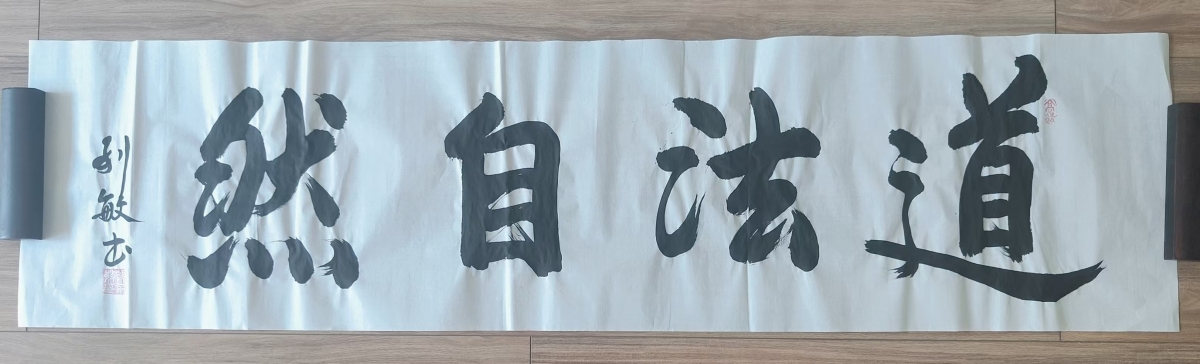 道法自然
刘敏书